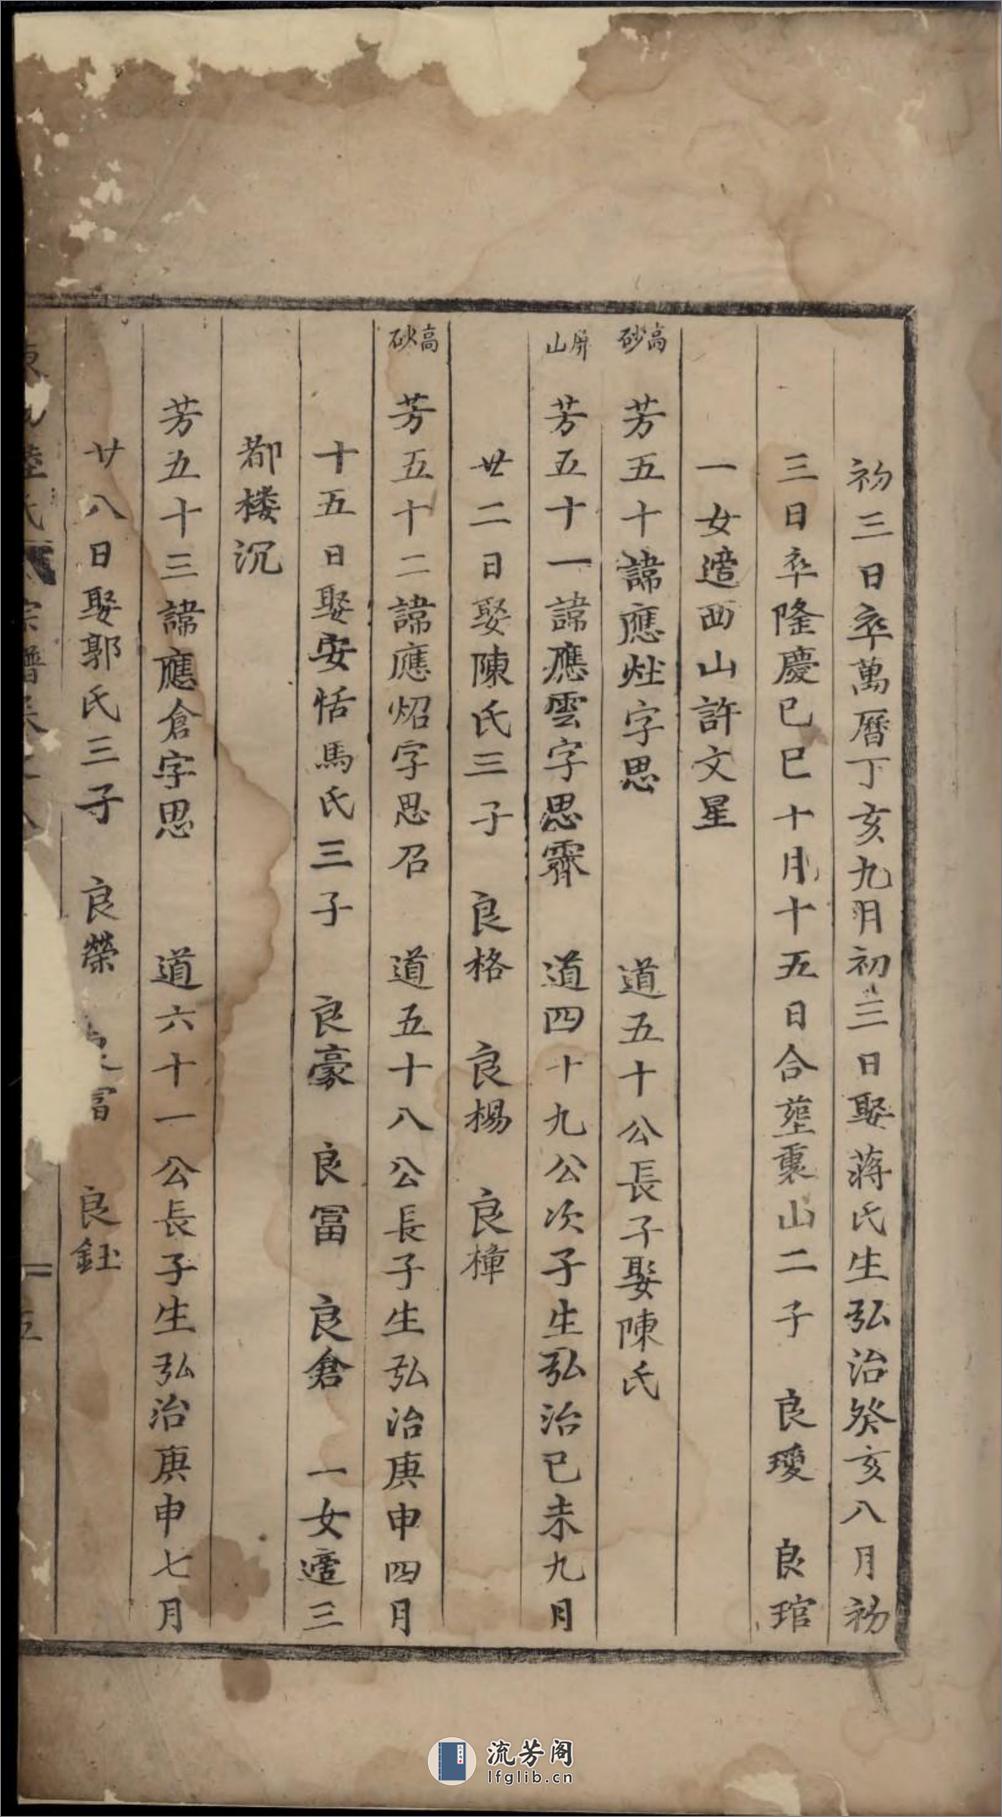 初三日卒萬曆丁亥九月初三日娶蔣氏生弘治癸亥八月初
三日卒隆慶己巳十月十五日合塟裏山二子 良瓊 良琯
一女適西山許文星
高砂
芳五十諱應炷字思 道五十公長子娶陳氏
屏山
芳五十一諱應雲字思霽 道四十九公次子生弘治己未九月
廿二日娶陳氏三子 良格 良楊 良樟
高砂
芳五十二諱應炤字思召 道五十八公長子生弘治庚申四月
十五日娶安恬馬氏三子 良豪 良冨 良倉 一女適三
都楼沉
芳五十三諱應倉字思 道六十一公長子生弘治庚申七月
廿八日娶郭氏三子 良榮 冨 良鈺
氏宗譜
五
流芳阁
lfglib.cn